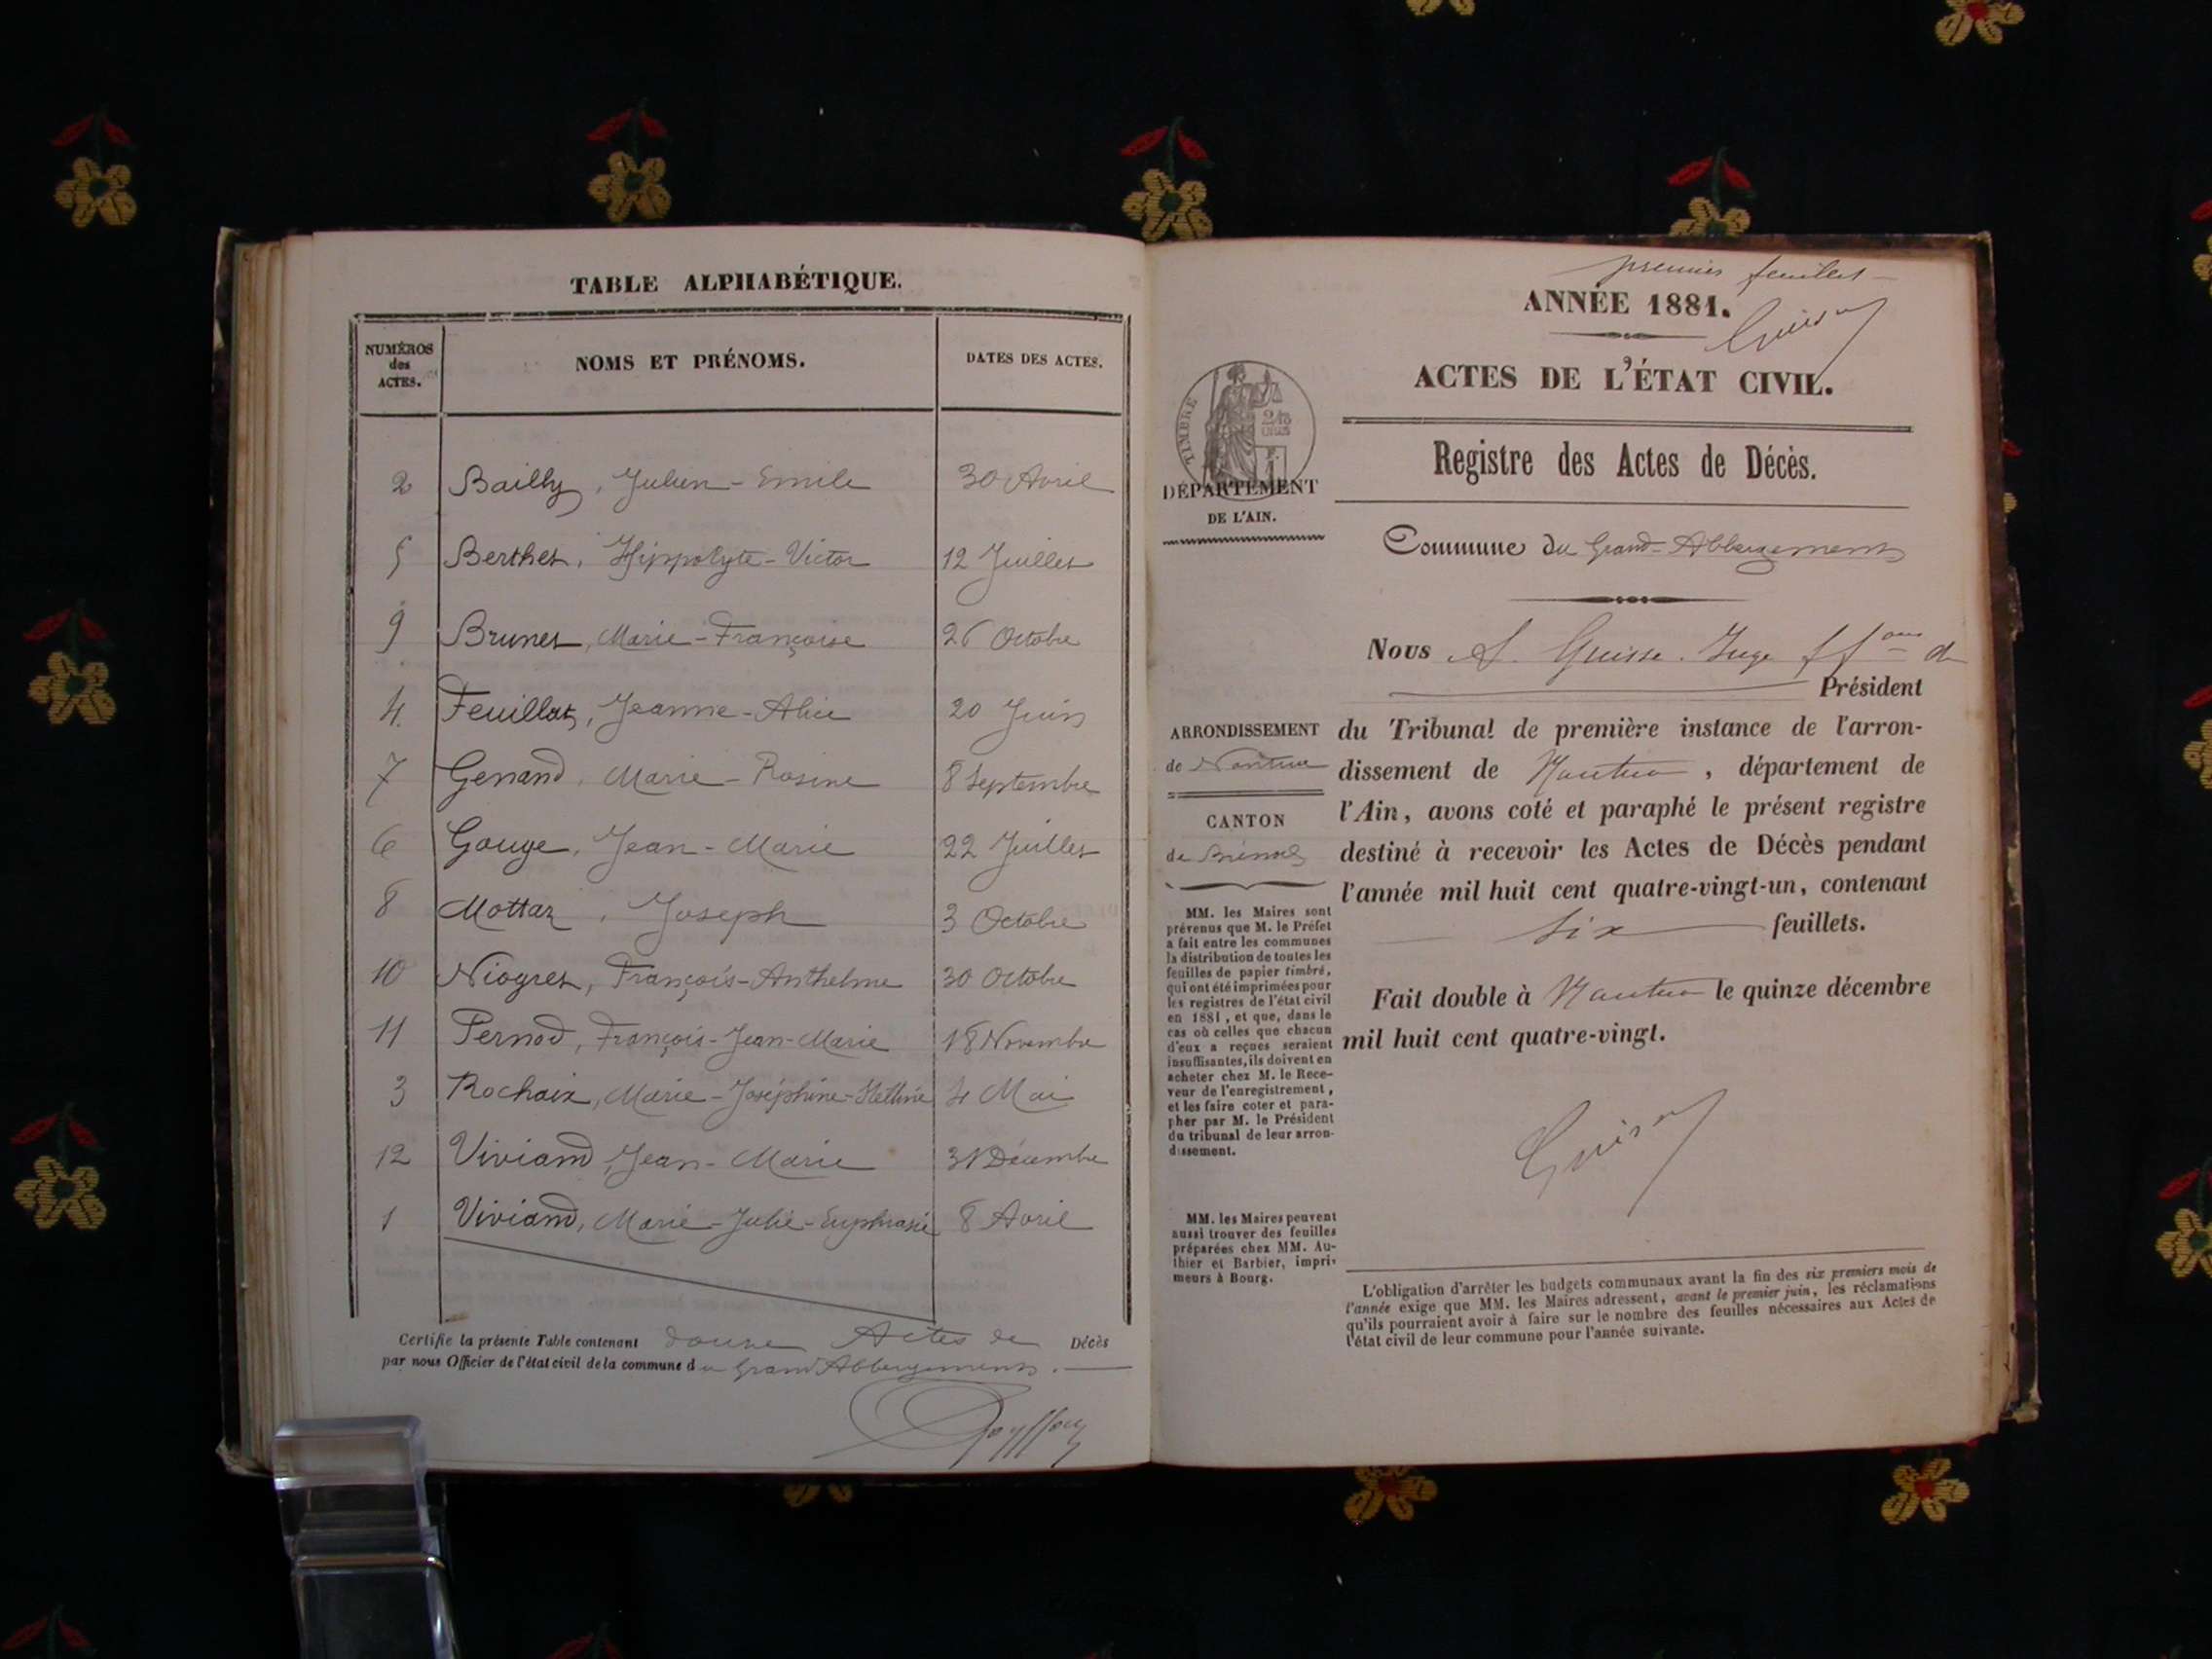 TABLE ALPHABÉTIQUE.
NUMÉROS
des
ACTES.
NOMS ET PRÉNOMS.
DATES DES ACTES.
2 Bailly, Julien-Emile 30 Avril
5 Berthet, Hippolyte-Victor 12 Juillet
9 Brunet, Marie-Françoise 26 Octobre
4. Feuillat, Jeanne-Alice 20 Juin
7 Genand, Marie-Rosine 8 Septembre
6 Gouge, Jean-Marie 22 Juillet
8 Mottaz, Joseph 3 Octobre
10 Niogret, François-Anthelme 30 Octobre
11 Pernod, François-Jean-Marie 18 Novembre
3 Rochaix, Marie-Joséphine- 4 Mai
12 Viviand, Jean-Marie 31 Décembre
1 Viviand, Marie-Julie-Euphrasie 8 Avril
Certifie la présente Table contenant douze Actes de Décès
par nous Officier de l'état civil de la commune du Grand Abbergement.
premier feuillet
ANNÉE 1881.
ACTES DE L'ÉTAT CIVIL.
TIMBRE
DÉPARTEMENT
DE L'AIN.
Registre des Actes de Décès.
Commune du Grand-Abbergement
Nous A. Guisse. Juge ff de
Président
ARRONDISSEMENT
de Nantua
CANTON
de Brénod
du Tribunal de première instance de l'arron-
dissement de Nantua, département de
l'Ain, avons coté et paraphé le présent registre
destiné à recevoir les Actes de Décès pendant
l'année mil huit cent quatre-vingt-un, contenant
six feuillets.
Fait double à Nantua le quinze décembre
mil huit cent quatre-vingt.
MM. les Maires sont
prévenus que M. le Préfet
a fait entre les communes
la distribution de toutes les
feuilles de papier timbré,
qui ont été imprimées pour
les registres de l'état civil
en 1881, et que, dans le
cas où celles que chacun
d'eux a reçues seraient
insuffisantes, ils doivent en
acheter chez M. le Rece-
veur de l'enregistrement,
et les faire coter et para-
pher par M. le Président
du tribunal de leur arron-
dissement.
MM. les Maires peuvent
aussi trouver des feuilles
préparées chez MM. Au-
thier et Barbier, impri-
meurs à Bourg.
L'obligation d'arrêter les budgets communaux avant la fin des six premiers mois de
l'année exige que MM. les Maires adressent, avant le premier juin, les réclamations
qu'ils pourraient avoir à faire sur le nombre des feuilles nécessaires aux Actes de
l'état civil de leur commune pour l'année suivante.